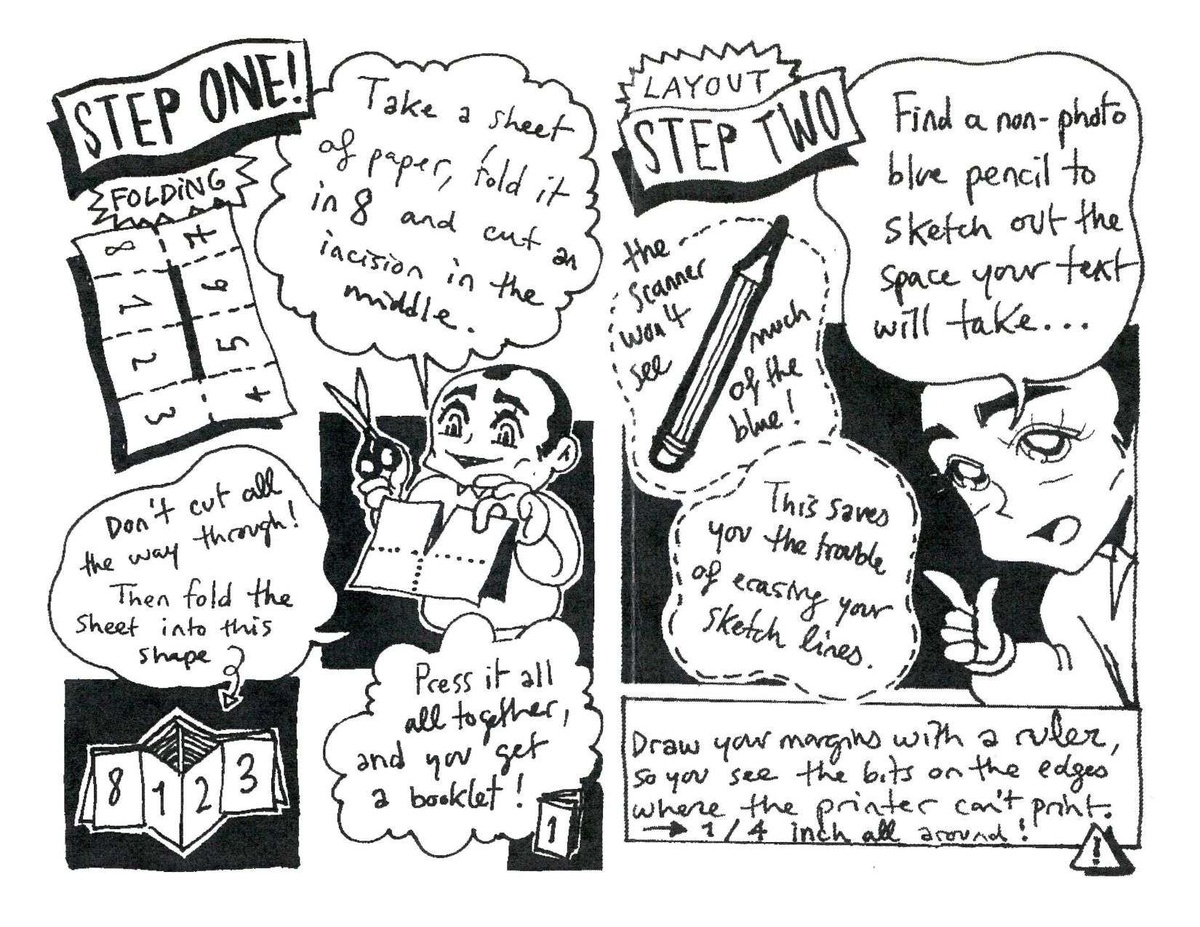 STEP ONE!
FOLDING
Take a sheet
of paper, fold it
in 8 and cut an
incision in the
middle.
8 7
1 6
2 5
3 4
Don't cut all
the way through!
Then fold the
sheet into this
shape
8 1 2 3
Press it all
all together,
and you get
a booklet!
1
LAYOUT
STEP TWO
Find a non-photo
blue pencil to
sketch out the
space your text
will take...
the
scanner
won't
see
much
of the
blue!
This saves
you the trouble
of erasing your
sketch lines.
Draw your margins with a ruler,
so you see the bits on the edges
where the printer can't print.
→ 1/4 inch all around!
!